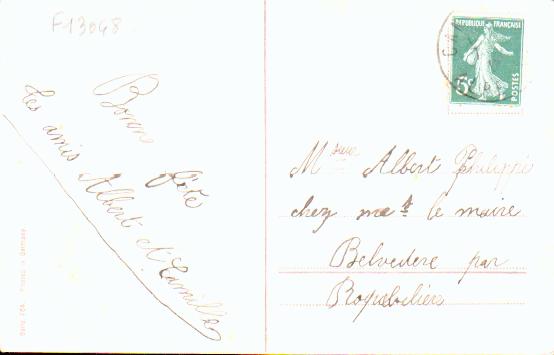 F13048
Bonne fête
les amis Albert et Camille
RÉPUBLIQUE FRANÇAISE
5c
POSTES
Msieur Albert Philippe
chez me le maire
Belvedere par
Roquebilière
Printed in Germany